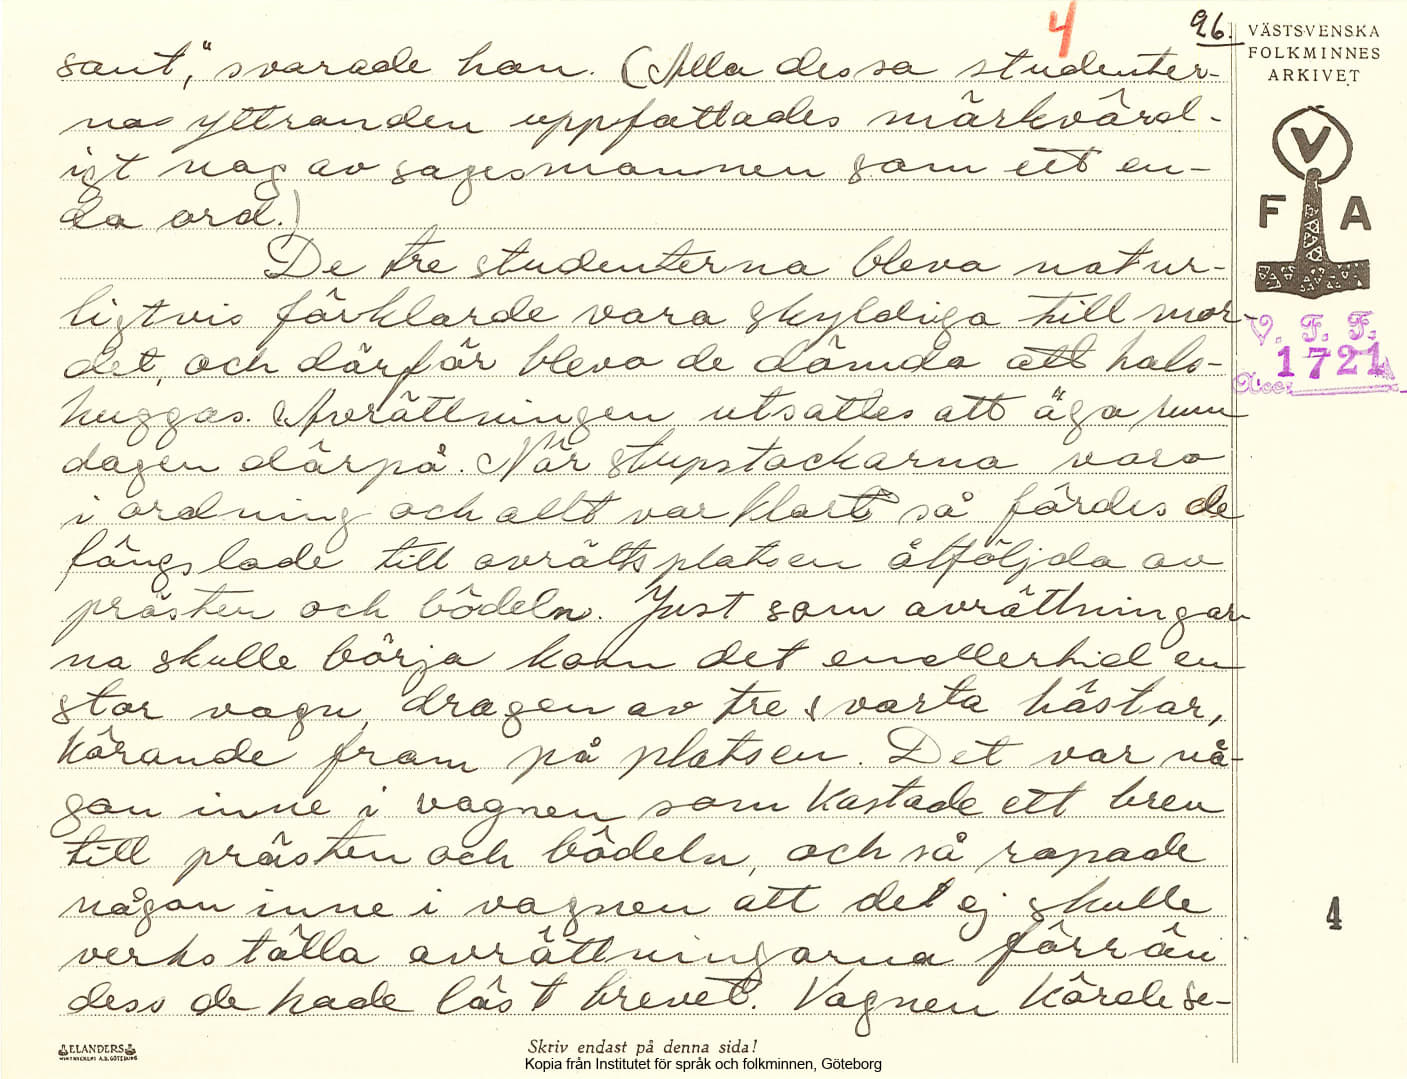 4
96.
VÄSTSVENSKA
FOLKMINNES
ARKIVET
sant,", svarade han. (Alla dessa studenter-
nas yttranden uppfattades märkvärd-
igt nog av sagesmannen som ett en-
da ord.)
De tre studenterna bleva natur-
ligtvis förklarde vara skyldiga till mor-
det, och därför blevo de dömda att hals-
huggas. Avrättningen utsattes att äga rum
dagen därpå. När stupstockarna voro
i ordning och allt var klart så fördes de
fängslade till avrättsplatsen åtföljda av
prästen och bödeln. Just som avrättningar
na skulle börja kom det emellertid en
stor vagn, dragen av tre svarta hästar,
körande fram på platsen. Det var nå-
gon inne i vagnen som kastade ett brev
till prästen och bödeln, och så ropade
någon inne i vagnen att det ej skulle
verkställa avrättningarna förrän
dess de hade läst brevet. Vagnen körde se-
V
F A
V. F. F.
1721
Acc:
4
ELANDERS
Skriv endast på denna sida!
Kopia från Institutet för språk och folkminnen, Göteborg